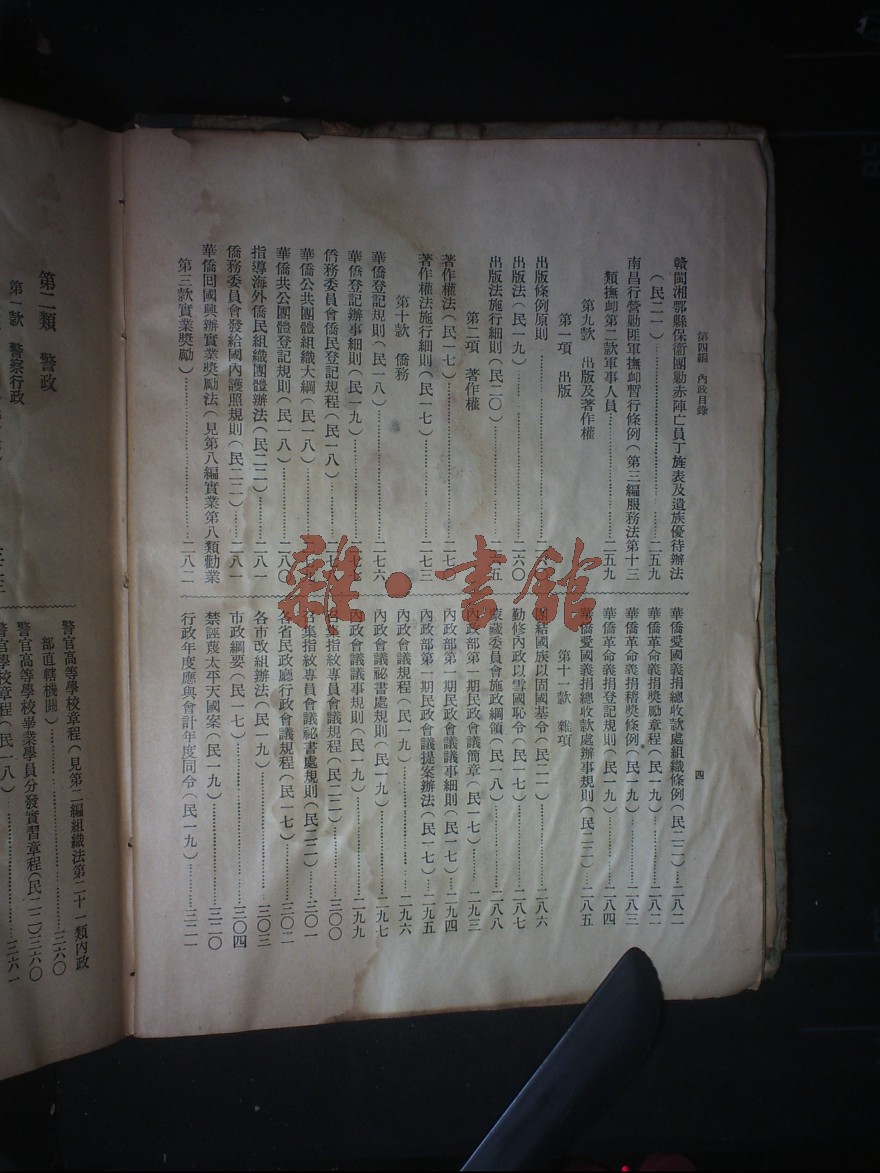 第四編 內政目錄
四
贛閩湘鄂縣保衞團勦赤陣亡員丁旌表及遺族優待辦法
(民二一)……二五九
南昌行營勦匪軍撫卹暫行條例(第三編服務法第十三
類撫卹第二款軍事人員……二五九
第九款 出版及著作權
第一項 出版
出版條例原則……二六〇
出版法(民一九)……二六〇
出版法施行細則(民二〇)……二六五
第二項 著作權
著作權法(民一七)……二七一
著作權法施行細則(民一七)……二七三
第十款 僑務
華僑登記規則(民一八)……二七六
華僑登記辦事細則(民一九)……二七七
僑務委員會僑民登記規程(民一八)……二七八
華僑公共團體組織大綱(民一八)……二七九
華僑共公團體登記規則(民一八)……二八〇
指導海外僑民組織團體辦法(民二二)……二八一
僑務委員會發給國內護照規則(民二二)……二八一
華僑回國興辦實業獎勵法(見第八編實業第八類勸業
第三款實業獎勵)……二八二
華僑愛國義捐總收款處組織條例(民二二)……二八二
華僑革命義捐獎勵章程(民一九)……二八二
華僑革命義捐稽獎條例(民一九)……二八三
華僑革命義捐登記規則(民一九)……二八四
華僑愛國義捐總收款處辦事規則(民二二)……二八五
第十一款 雜項
團結國族以固國基令(民二一)……二八六
勤修內政以雪國恥令(民一七)……二八七
蒙藏委員會施政綱領(民一八)……二八八
內政部第一期民政會議簡章(民一七)……二九三
內政部第一期民政會議議事細則(民一七)……二九四
內政部第一期民政會議提案辦法(民一七)……二九五
內政會議規程(民一九)……二九六
內政會議祕書處規則(民一九)……二九七
內政會議議事規則(民一九)……二九九
召集指紋專員會議規程(民二二)……三〇〇
召集指紋專員會議祕書處規則(民二二)……三〇一
各省民政廳行政會議規程(民一七)……三〇二
各市改組辦法(民一九)……三〇三
市政綱要(民一七)……三〇四
禁誣蔑太平天國案(民一九)……三二〇
行政年度應與會計年度同令(民一九)……三二一
第二類 警政
第一款 警察行政
警官高等學校章程(見第二編組織法第二十一類內政
部直轄機關)……三六〇
警官高等學校畢業學員分發實習章程(民二二)三六〇
警官學校章程(民一八)……三六一
雜·書館